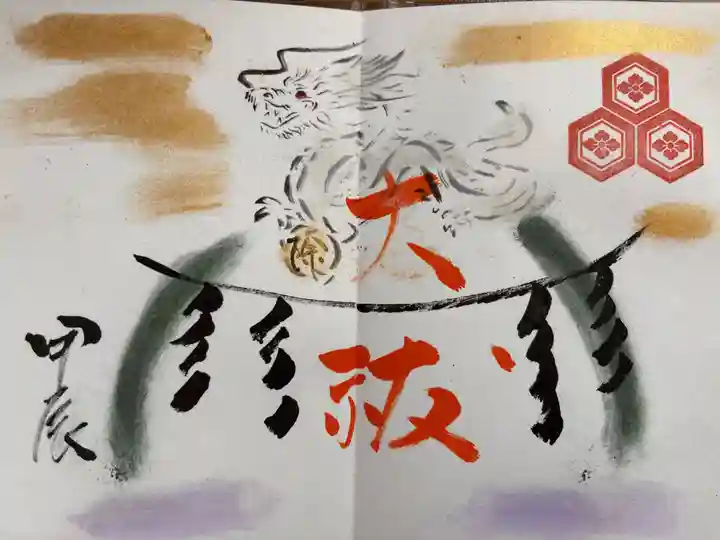 大祓
除
甲辰